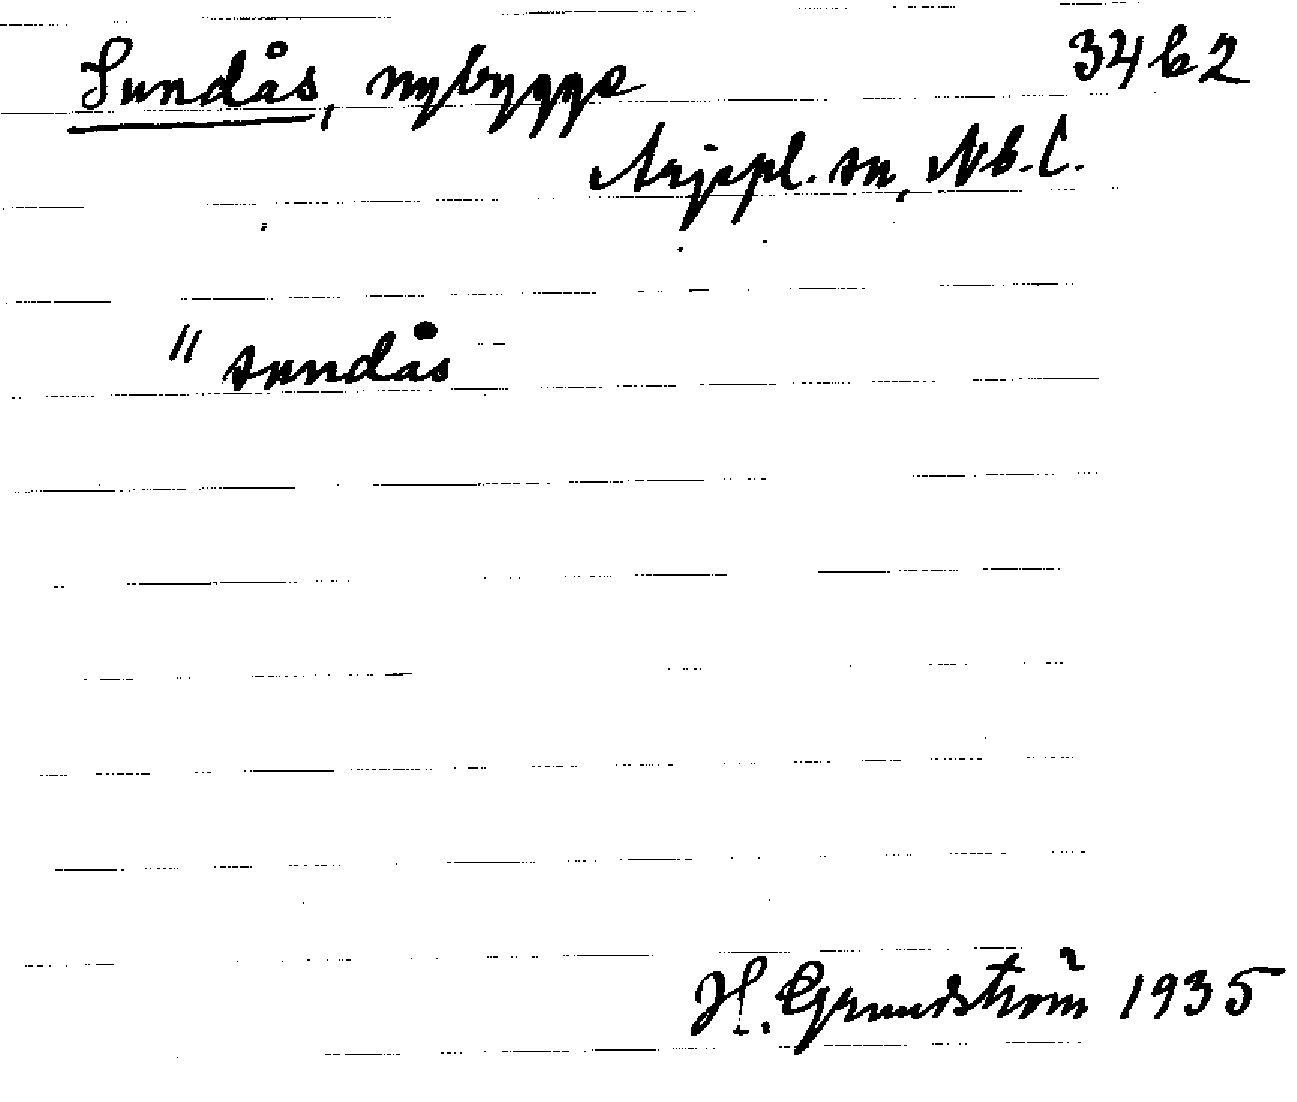 Sundås, nybygge 34b2
Arjepl. sn, Nb. l.
" sundås
H. Grundström 1935